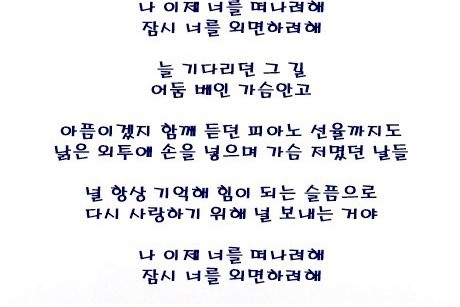 나 이제 너를 떠나려해
잠시 너를 외면하려해
늘 기다리던 그 길
어둠 베인 가슴안고
아픔이겠지 함께 듣던 피아노 선율까지도
낡은 외투에 손을 넣으며 가슴 저몄던 날들
널 항상 기억해 힘이 되는 슬픔으로
다시 사랑하기 위해 널 보내는 거야
나 이제 너를 떠나려해
잠시 너를 외면하려해